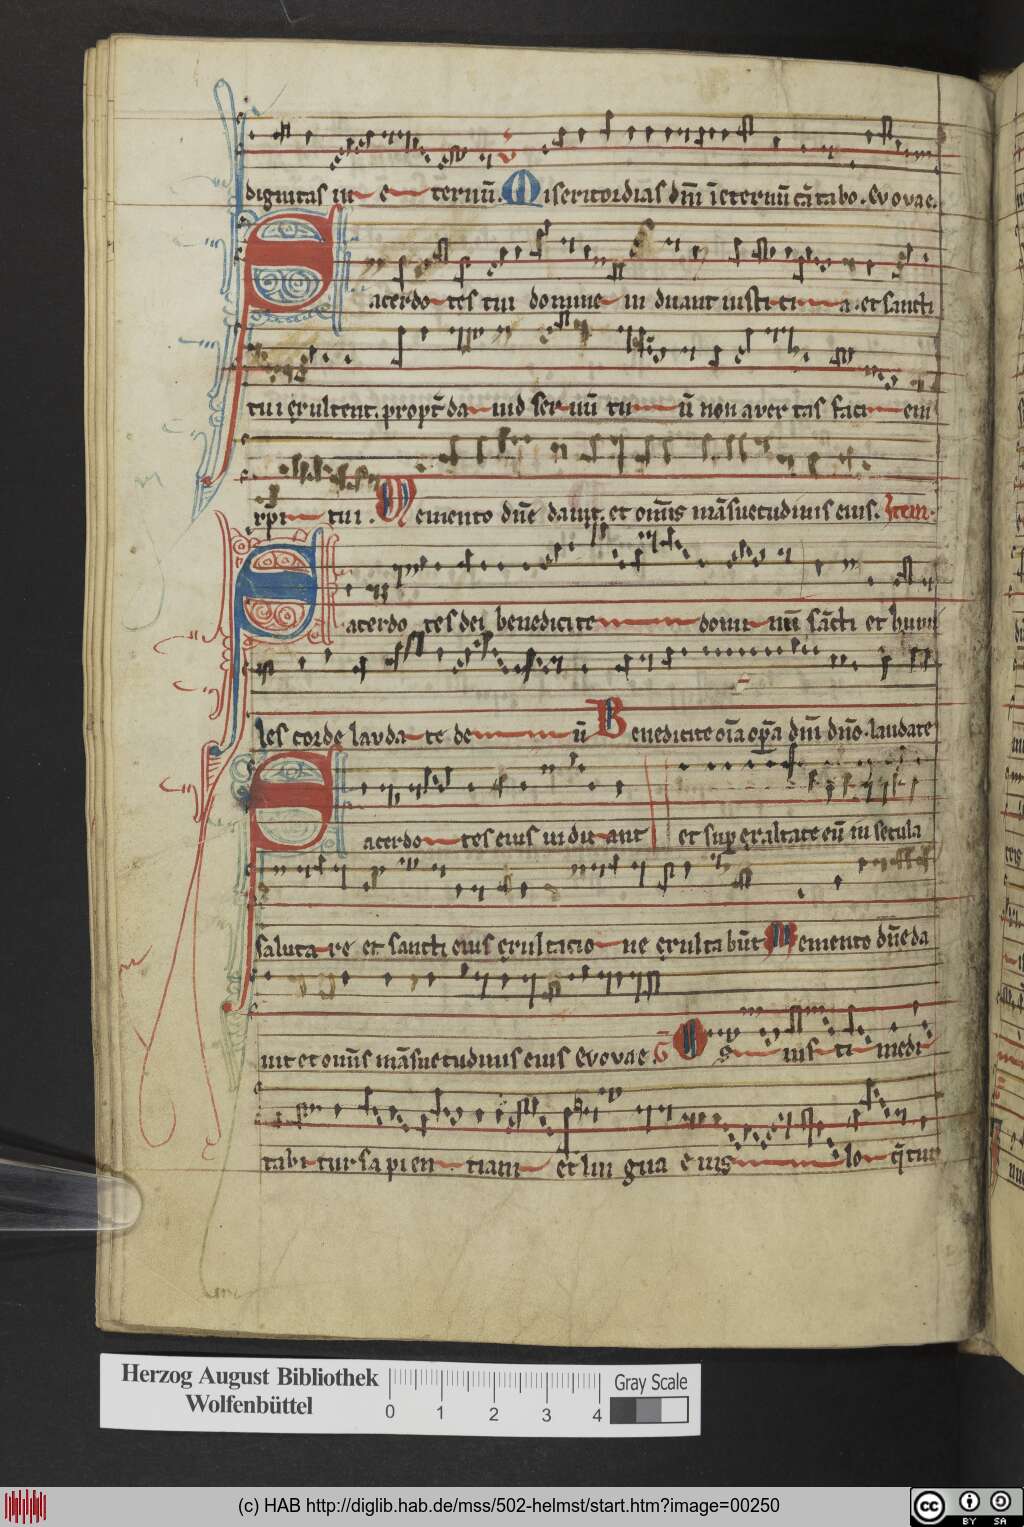 dignitas in e ternū. Misericordias dn̄i īeternū cātabo. Evovae.
Sacerdo tes tui domine in duant iusti ti a. et sancti
tui exultent. propt̄ da uid ser uū tu ū non aver tas faci em
xp̄i tui. Memento dn̄e dauit. et om̄s māsuetudinis eius. Item.
Sacerdo tes dei benedicite domi nū sācti et humi
les corde lavda te de ū Benedicite oīa op̄a dn̄i dn̄o. laudate
Sacerdo tes eius induant et sup exaltate eū in secula
saluta re et sancti eius exultatio ne exultabūt Memento dn̄e da
uit et om̄s māsuetudinis eius Evovae. Os ius ti medi
tabi tur sapien tiam et lin gua eius lo q̄tur
Herzog August Bibliothek
Wolfenbüttel
0 1 2 3 4
Gray Scale
(c) HAB http://diglib.hab.de/mss/502-helmst/start.htm?image=00250
cc BY SA